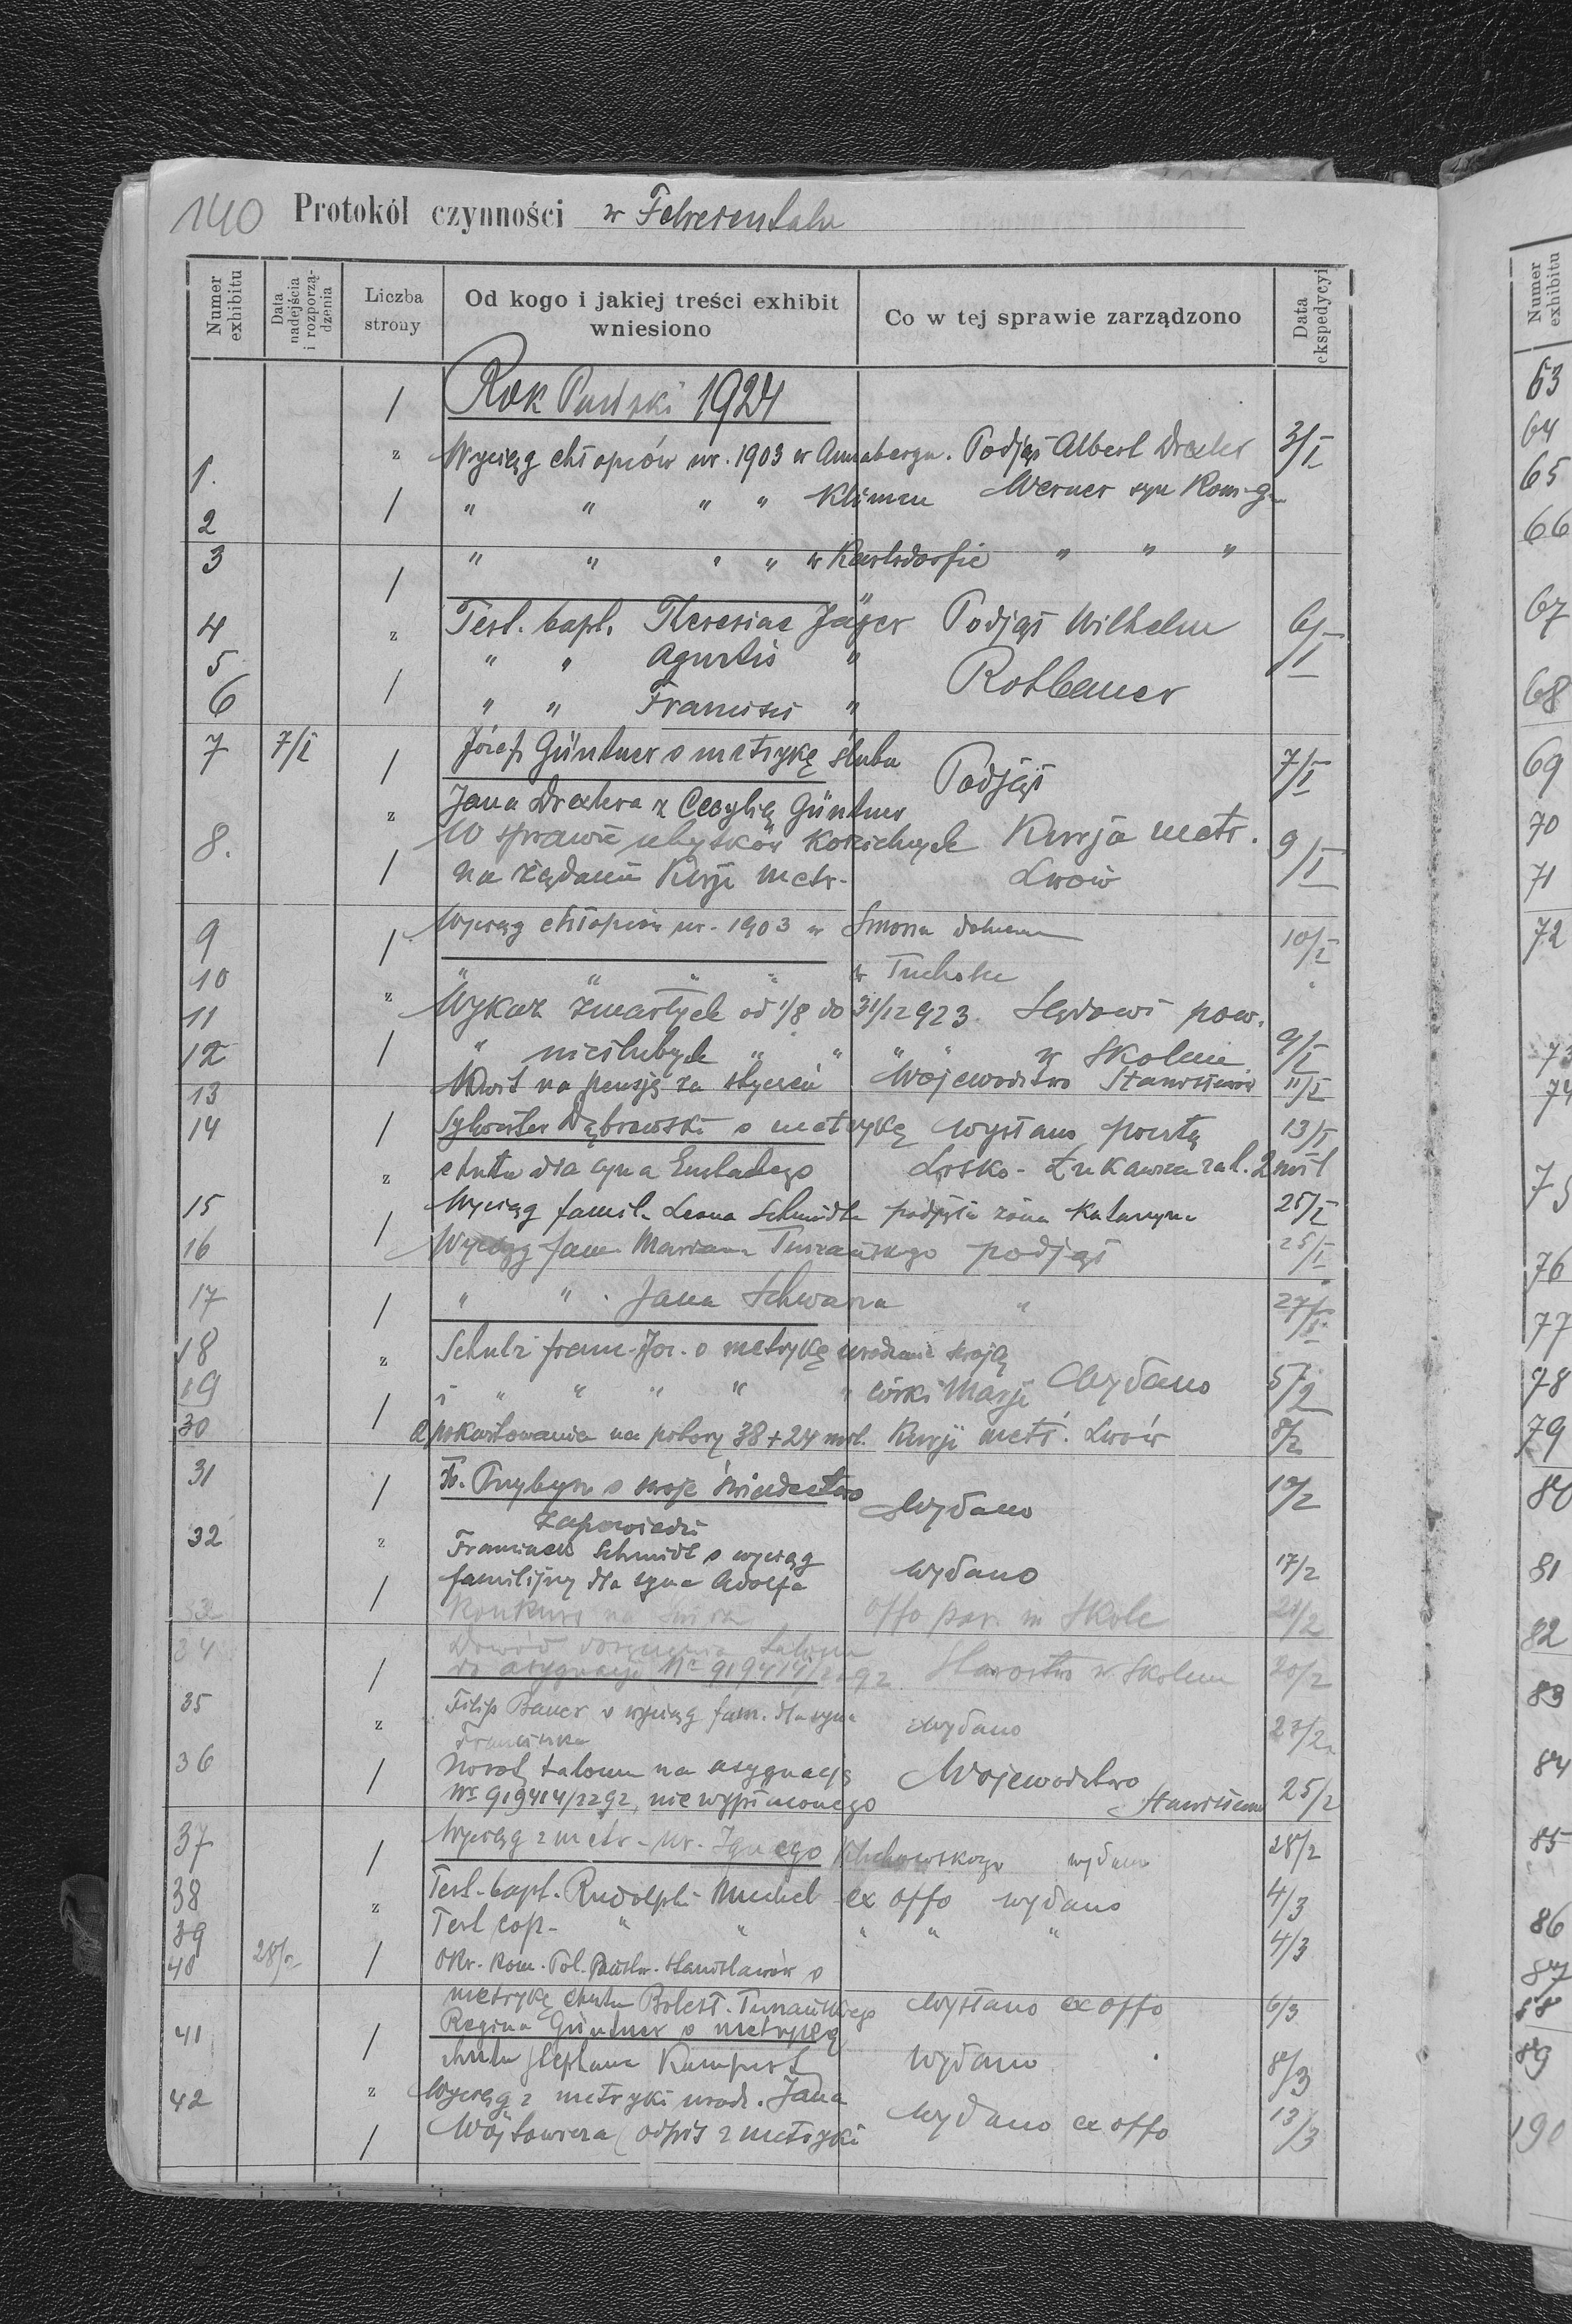 140 Protokół czynności w Felizientalu
Numer exhibitu
Data nadejścia i rozporządzenia
Liczba strony
Od kogo i jakiej treści exhibit wniesiono
Co w tej sprawie zarządzono
Data ekspedycyi
Rok Pański 1924
1. Wyciąg chłopców ur. 1903 w Annabergu. Podjął Albert Drexler 3/I
2 " " " " Klimcu Werner syn
3 " " " " w Karlsdorfie " " "
4 Test. bapt. Theresiae Jäger Podjął Wilhelm 6/I
5 " " Agnetis " Rotbauer
6 " " Francisci "
7 7/I Józef Güntner o metrykę ślubu Podjął 7/I
Jana Drexlera z Cecylią Güntner
8. W sprawie ubytków kościelnych Kurja metr. 9/I
na żądanie Kurji metr. Lwów
9 Wyciąg chłopców ur. 1903 w 10/I
10 " " " " w Tucholce "
11 Wykaz zmarłych od 1/8 do 31/12 923. Sądowi pow.
12 " nieślubych " " " " w Skolem 9/I
13 Kwit na pensję za styczeń Województwo Stanisławów 11/I
14 Sylwester Dąbrowski o metrykę wysłano pocztą 13/I
chrztu dla syna Lisko - Łukawica zał. 2 mil
15 Wyciąg famil. Leona Schmidta podjęła żona Katarzyna 25/I
16 Wyciąg fam. Mariana Turzańskiego podjął 25/I
17 " " Jana Schwarza " 27/I
18 Schulz Franc. Joz. o metrykę urodzenia swoją
19 i " " " " " córki Marji Wydano 5/2
30 2 pokwitowania na pobory 38 + 24 mil. Kurji metr. Lwów 8/2
31 Fr. Przybysz o swoje świadectwo Wydano 10/2
zapowiedzi
32 Franciszek Schmidt o wyciąg wydano 17/2
familijny dla syna Adolfa
Konkurs na offo par. in Skole 20/2
34 Dowód doręczenia talonu
do asygnacji No 919414/2292 Starostwo w Skolem 20/2
35 Filip Bauer o wyciąg fam. dla syna wydano 23/2
Franciszka
36 talonu na asygnację Województwo
No 919414/2292, niewypłaconego Stanisławów 25/2
37 Wyciąg z metr. ur. Ignacego wydano 28/2
38 Test. bapt. Rudolphi Muchel ex offo wydano 4/3
39 Test cop. " " " " " 4/3
40 28/2 Okr. Kom. Pol. Państw. Stanisławów o
metrykę chrztu Bolesł. Turzańskiego wysłano ex offo 6/3
41 Regina Güntner o metrykę
chrztu Stephana Kampert wydano 8/3
42 Wyciąg z metryki urodz. Jana wydano ex offo 13/3
Wojtowicza (odpis z metryki
Numer exhibitu
63
64
65
66
67
68
69
70
71
72
73
74
75
76
77
78
79
80
81
82
83
84
85
86
87
88
89
190